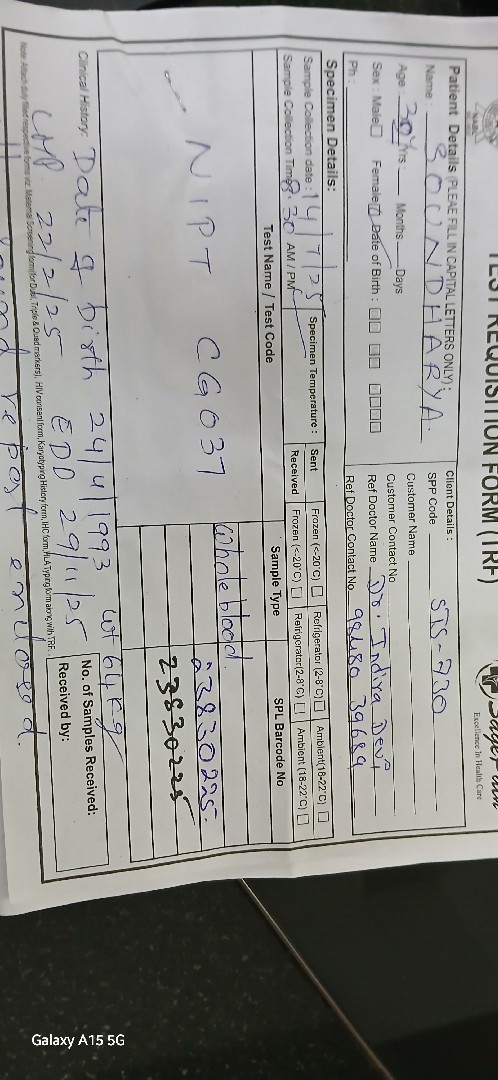 TEST REQUISITION FORM (TRF)
Excellence In Health Care
Patient Details (PLEAE FILL IN CAPITAL LETTERS ONLY) :
Name : SOUNDHARYA.
Age : 30 Yrs Months Days
Sex : Male Female Date of Birth :
Ph :
Client Details :
SPP Code STS-730
Customer Name
Customer Contact No
Ref Doctor Name Dr. Indira Devi
Ref Doctor Contact No 98480 39689
Specimen Details:
Sample Collection date : 14/7/25
Sample Collection Time: 8.30 AM / PM
Specimen Temperature :
Sent Frozen (<-20°C) Refrigerator (2-8°C) Ambient(18-22°C)
Received Frozen (<-20°C) Refrigerator(2-8°C) Ambient (18-22°C)
Test Name / Test Code Sample Type SPL Barcode No
NIPT CG037 Whole blood. 23830225.
23830225
Clinical History: Date of birth 24/4/1993 wt 64kg
LMP 22/2/25 EDD 29/11/25
No. of Samples Received:
Received by:
Note: Attach duly filled respective forms viz. Maternal Screening form(for Dual, Triple & Quad markers), HIV consent form, Karyotyping History form, IHC form, HLA Typing form along with TRF.
report enclosed.
Galaxy A15 5G